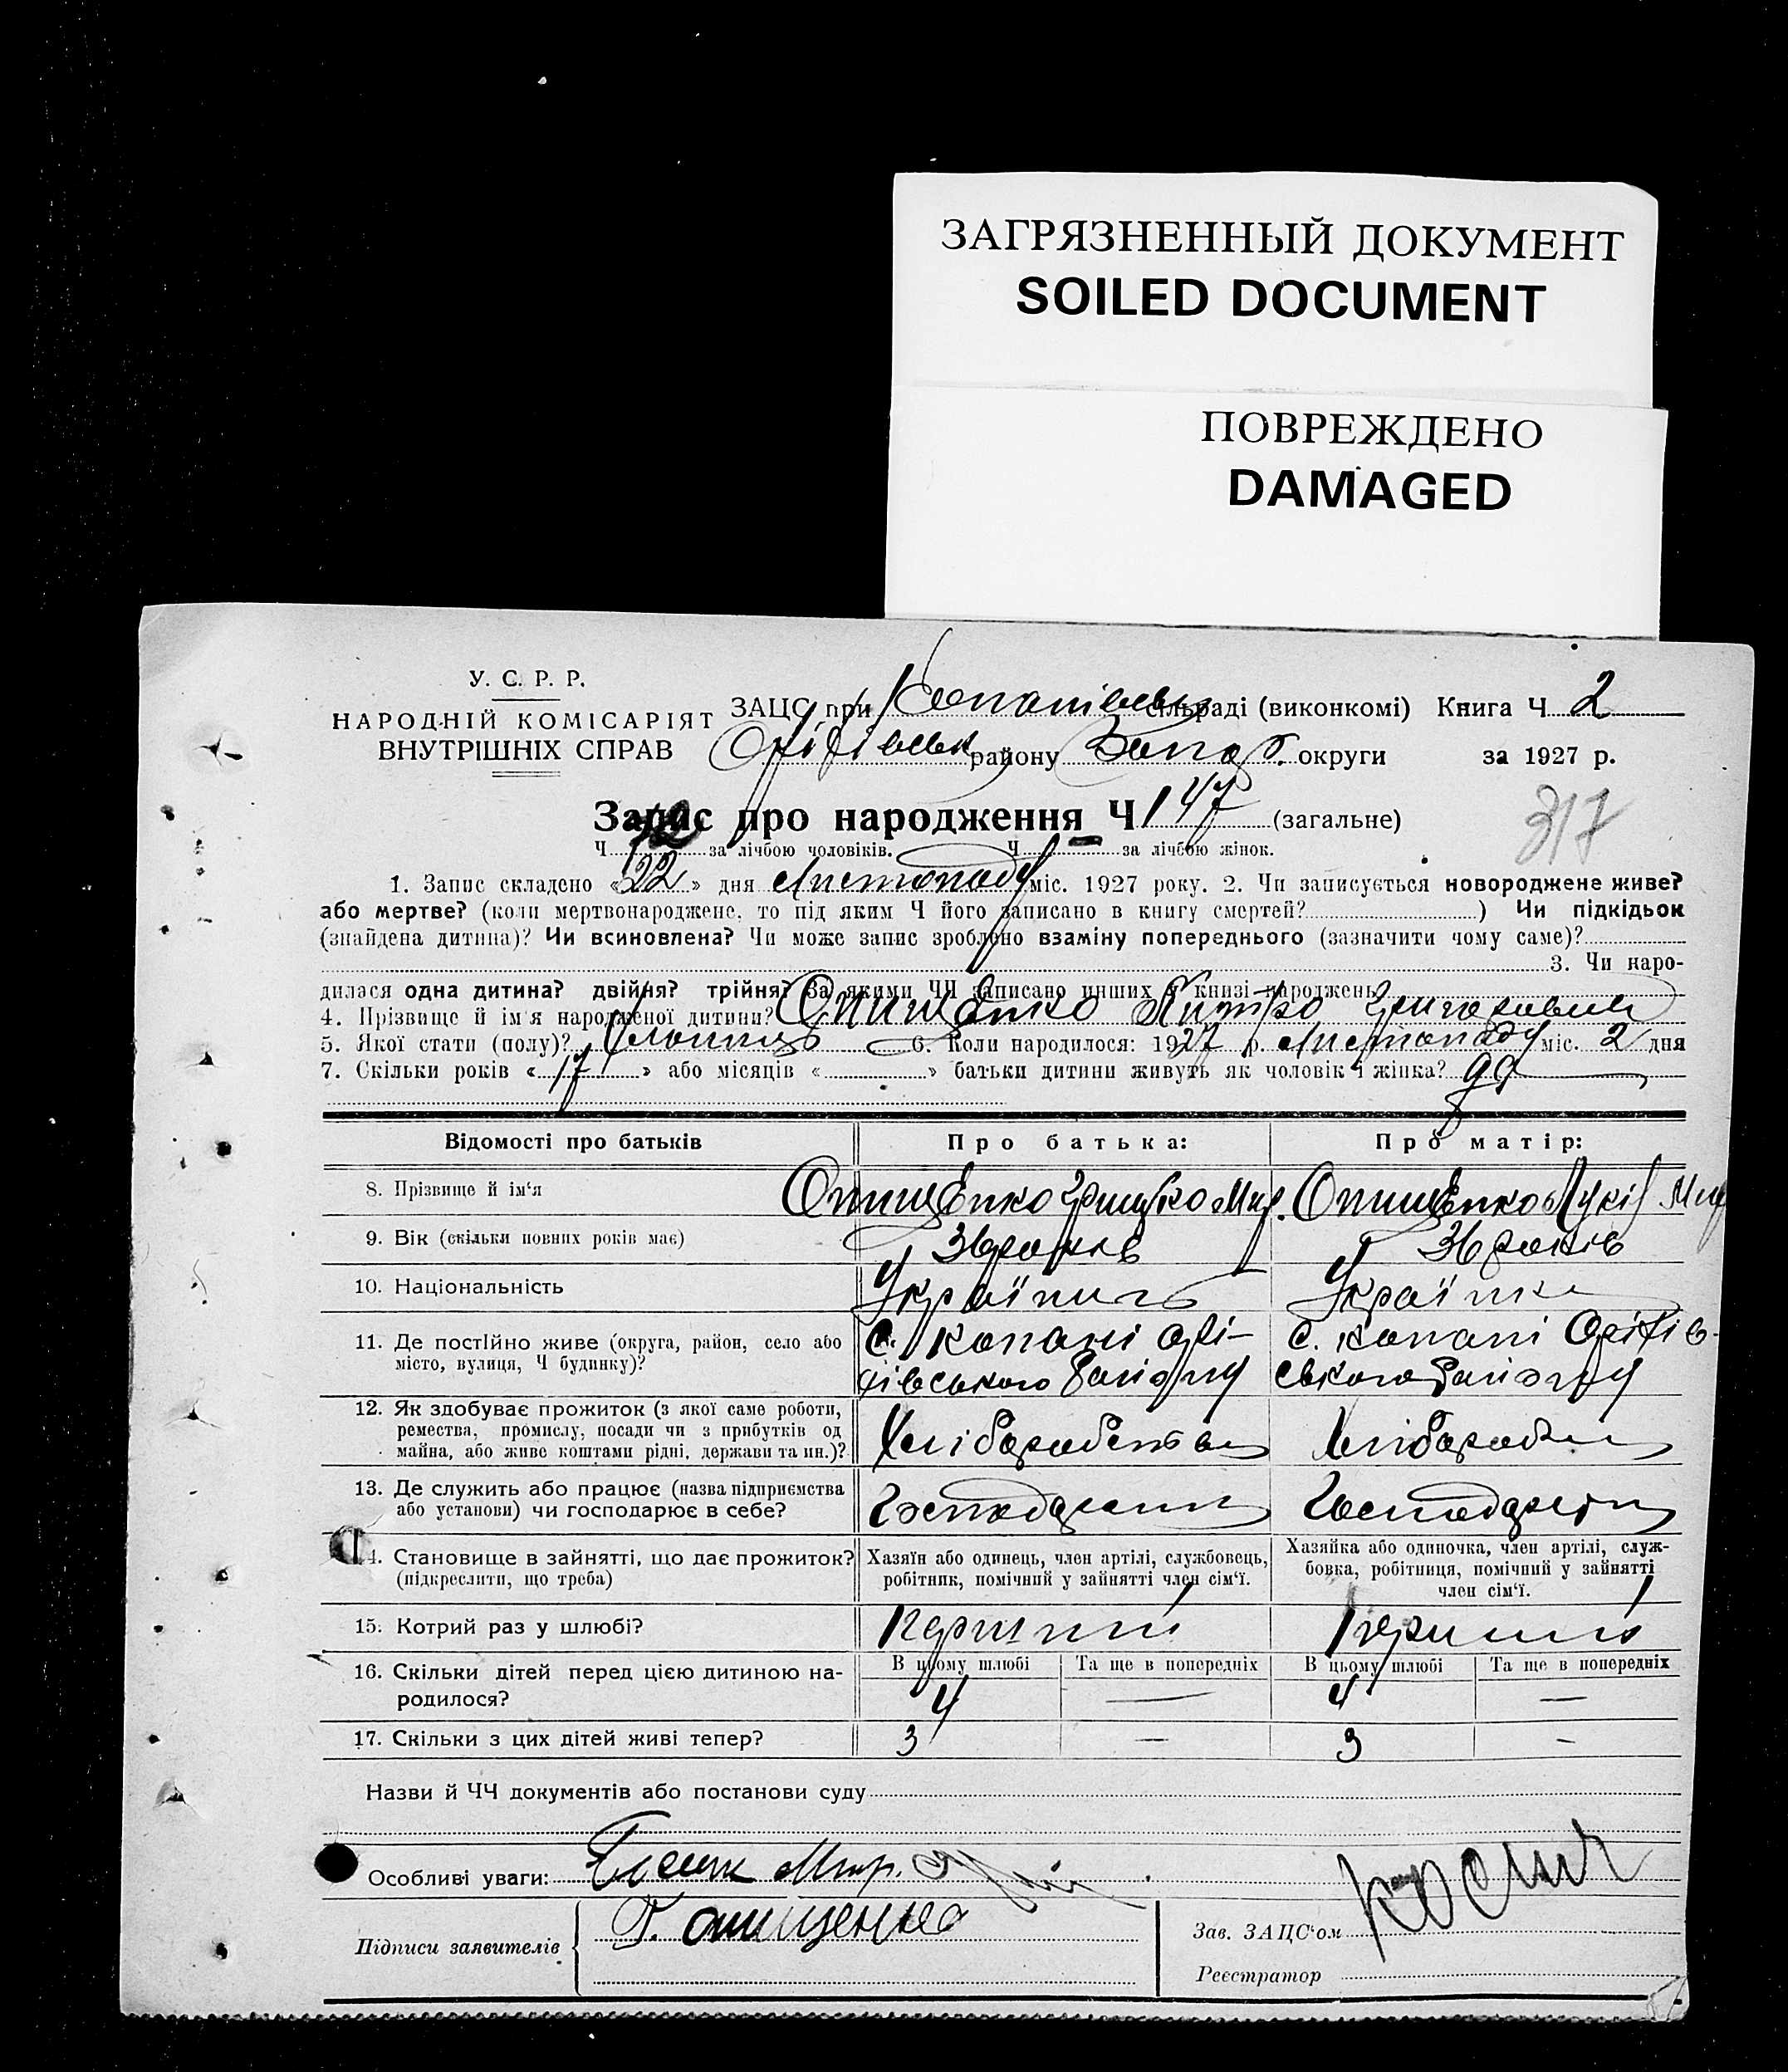 ЗАГРЯЗНЕННЫЙ ДОКУМЕНТ
SOILED DOCUMENT
ПОВРЕЖДЕНО
DAMAGED
У. С. Р. Р.
НАРОДНІЙ КОМІСАРІЯТ
ВНУТРІШНІХ СПРАВ
ЗАЦС при Копанівськ сільраді (виконкомі) Книга Ч 2
Оріхівськ району Запор. округи за 1927 р.
Запис про народження Ч 147 (загальне)
317
Ч за лічбою чоловіків. Ч — за лічбою жінок.
1. Запис складено «22» дня Листопаду міс. 1927 року. 2. Чи записується новороджене живе?
або мертве? (коли мертвонароджене, то під яким Ч його записано в книгу смертей? ) Чи підкідьок
(знайдена дитина)? Чи всиновлена? Чи може запис зроблено взаміну попереднього (зазначити чому саме)?
3. Чи наро-
дилася одна дитина? двійня? трійня? За якими ЧЧ записано инших в книзі народжень
4. Прізвище й ім'я народженої дитини? Онищенко Дмитро Григорович
5. Якої стати (полу)? Хлопець 6. Коли народилося: 1927 р. Листопаду міс. 2 дня
7. Скільки років «17» або місяців « » батьки дитини живуть як чоловік і жінка?
Відомості про батьків Про батька: Про матір:
8. Прізвище й ім'я Онищенко Грицько Мир. Онищенко Лукія
9. Вік (скільки повних років має) 36 років 36 років
10. Національність Українець Українка
11. Де постійно живе (округа, район, село або місто, вулиця, Ч будинку)?
с. Копані Орі-
хівського району
с. Копані Оріхів-
ського району
12. Як здобуває прожиток (з якої саме роботи,
ремества, промислу, посади чи з прибутків од
майна, або живе коштами рідні, держави та ин.)?
Хліборобства
13. Де служить або працює (назва підприємства
або установи) чи господарює в себе?
14. Становище в зайнятті, що дає прожиток?
(підкреслити, що треба)
Хазяїн або одинець, член артілі, службовець,
робітник, помічний у зайнятті член сім'ї.
Хазяйка або одиночка, член артілі, служ-
бовка, робітниця, помічний у зайнятті
член сім'ї.
15. Котрий раз у шлюбі? Перший Перший
16. Скільки дітей перед цією дитиною на-
родилося?
В цьому шлюбі Та ще в попередніх В цьому шлюбі Та ще в попередніх
4 — 4 —
17. Скільки з цих дітей живі тепер? 3 — 3 —
Назви й ЧЧ документів або постанови суду
Особливі уваги:
Підписи заявителів Г. Онищенко
Зав. ЗАЦС'ом
Реєстратор